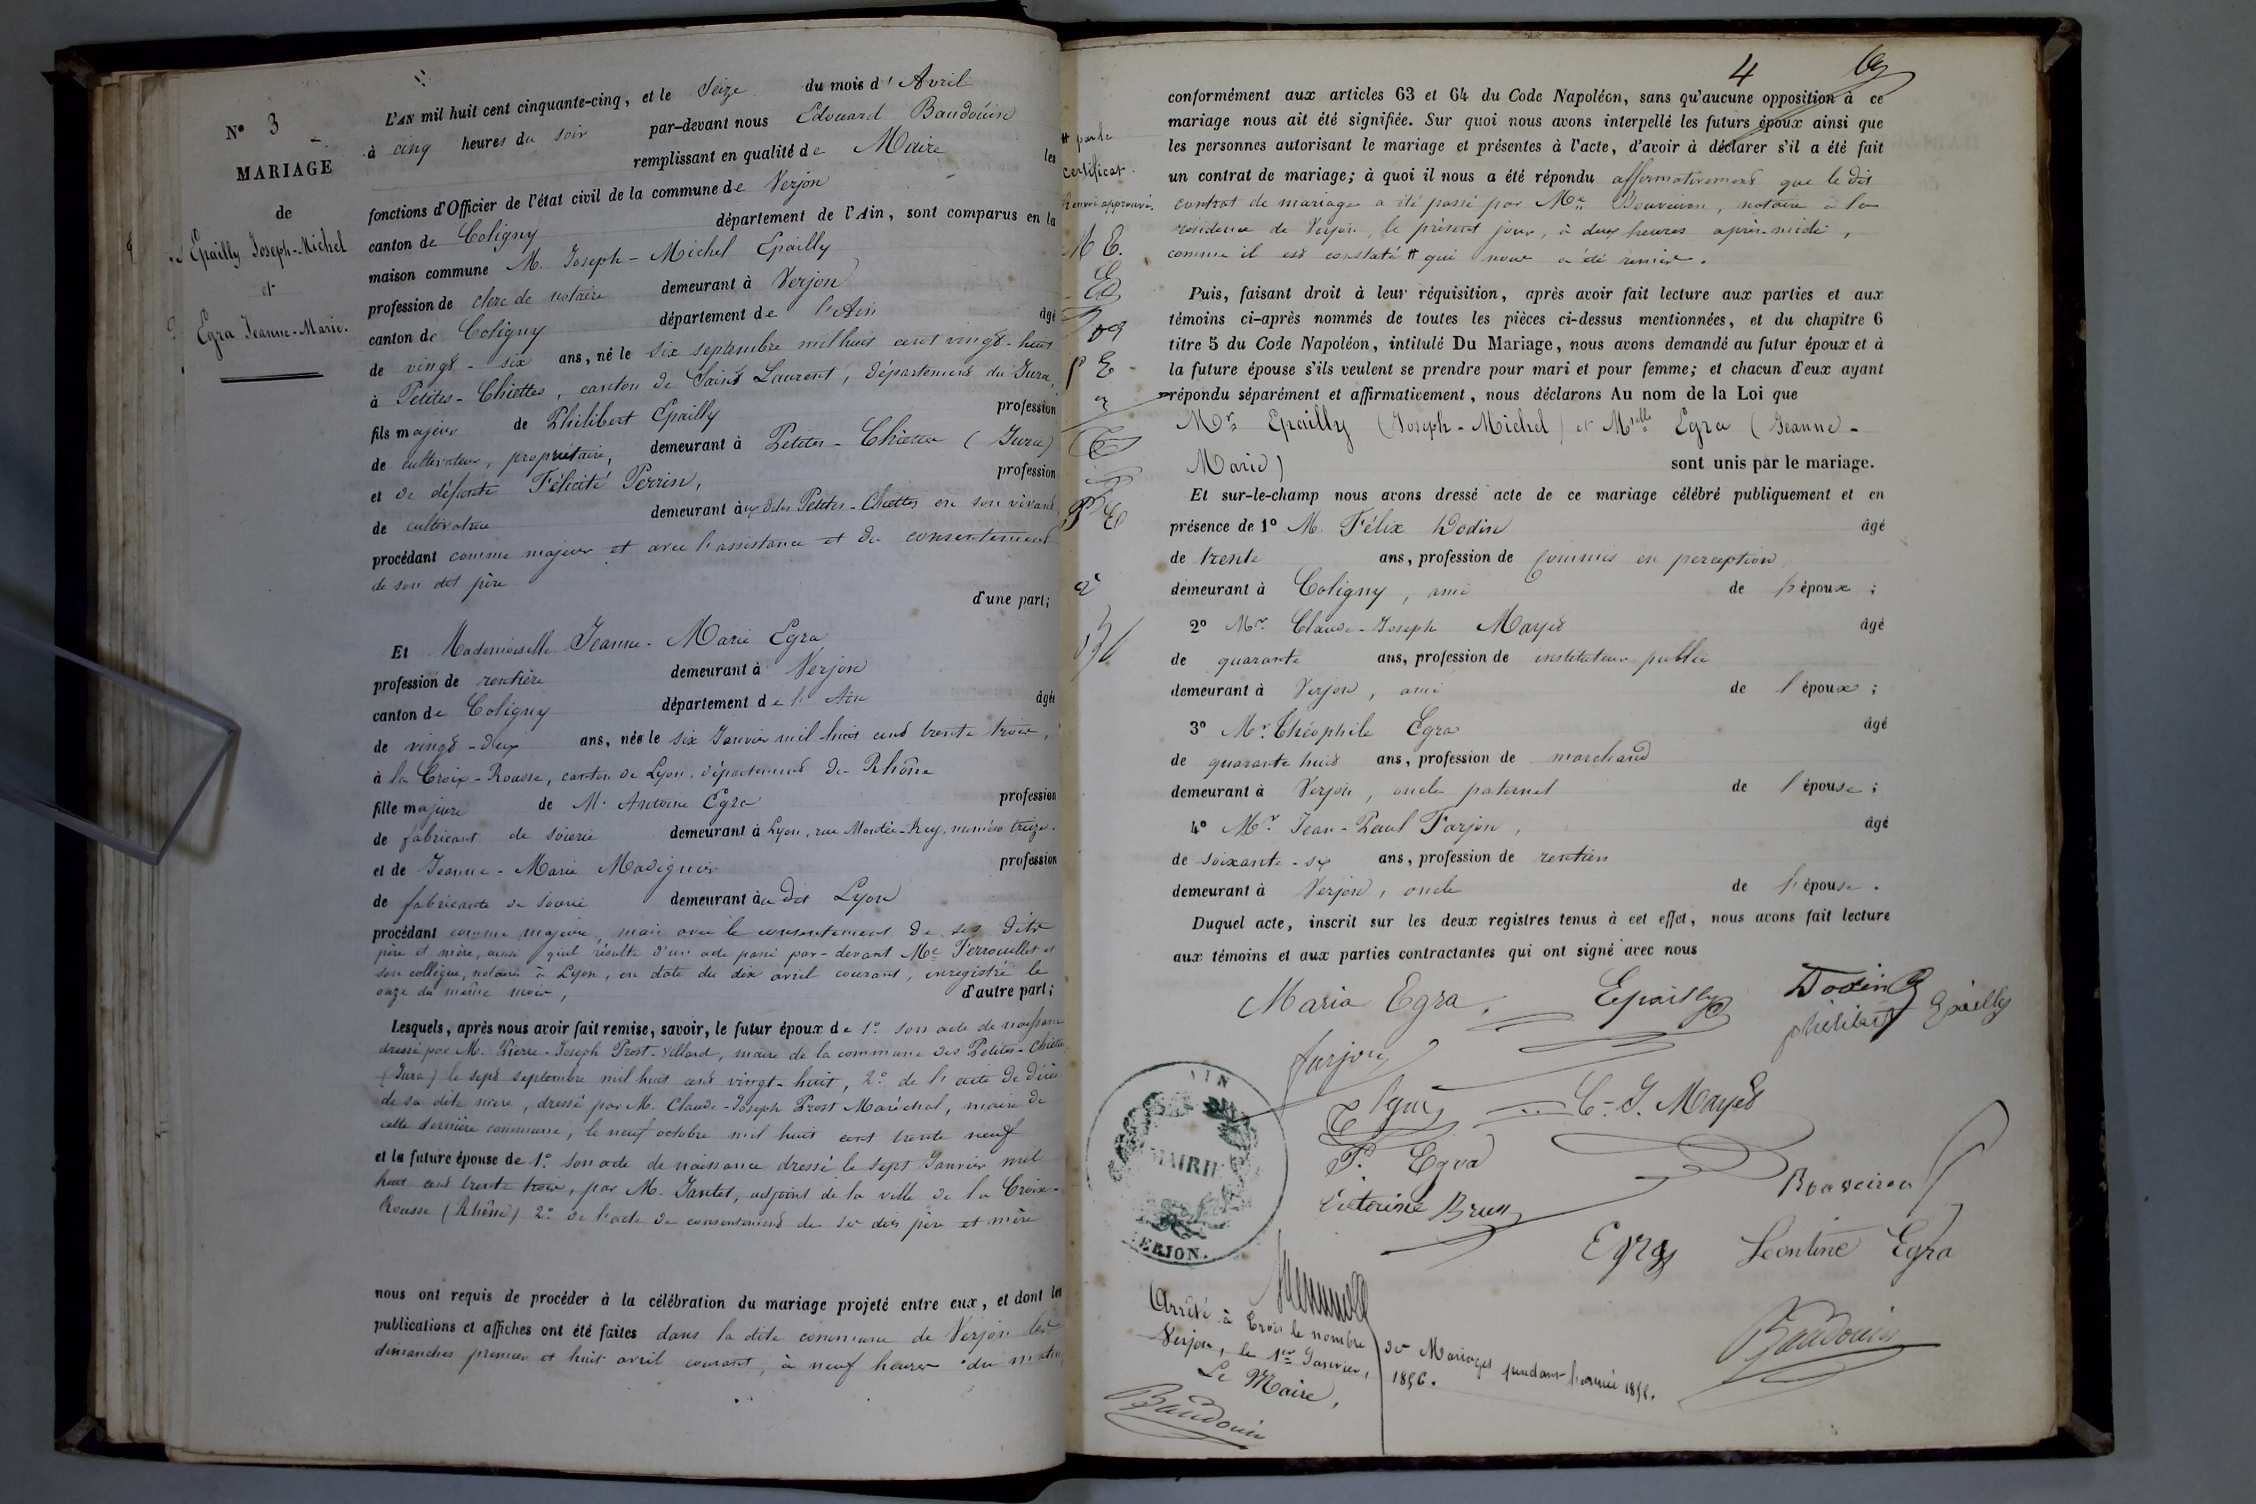 N° 3
MARIAGE
de
Epailly Joseph-Michel
et
Egra Jeanne-Marie.
L'AN mil huit cent cinquante-cinq, et le Seize du mois d'Avril
à cinq heures du soir par-devant nous Edouard Baudouin
remplissant en qualité de Maire les
fonctions d'Officier de l'état civil de la commune de Verjon
canton de Coligny département de l'Ain, sont comparus en la
maison commune M. Joseph-Michel Epailly
profession de clerc de notaire demeurant à Verjon
canton de Coligny département de l'Ain âgé
de vingt-six ans, né le six septembre mil huit cent vingt-huit
à Petites-Chiettes, canton de Saint Laurent, département du Jura,
fils majeur de Philibert Epailly profession
de cultivateur, propriétaire, demeurant à Petites-Chiettes (Jura)
et de défunte Félicité Perrin, profession
de cultivatrice demeurant aux dites Petites-Chiettes en son vivant
procédant comme majeur et avec l'assistance et du consentement
de son dit père
d'une part;
Et Mademoiselle Jeanne-Marie Egra
profession de rentière demeurant à Verjon
canton de Coligny département de l'Ain âgée
de vingt-deux ans, née le six Janvier mil huit cent trente trois,
à la Croix-Rousse, canton de Lyon, département du Rhône
fille majeure de M. Antoine Egra profession
de fabricant de soierie demeurant à Lyon, rue Montée-Rey, numéro treize.
et de Jeanne-Marie Madignier profession
de fabricante de soierie demeurant au dit Lyon
procédant comme majeure, mais avec le consentement de ses dits
père et mère, ainsi qu'il résulte d'un acte passé par-devant Me Ferrouillet et
son collègue, notaires à Lyon, en date du dix avril courant, enregistré le
onze du même mois, d'autre part;
Lesquels, après nous avoir fait remise, savoir, le futur époux de 1° son acte de naissance
dressé par M. Pierre-Joseph Prost-Villard, maire de la commune des Petites-Chiettes
(Jura) le sept septembre mil huit cent vingt-huit, 2° de l'acte de décès
de sa dite mère, dressé par M. Claude-Joseph Prost Maréchal, maire de
cette dernière commune, le neuf octobre mil huit cent trente neuf
et la future épouse de 1° son acte de naissance dressé le sept Janvier mil
huit cent trente trois, par M. Jantet, adjoint de la ville de la Croix-
Rousse (Rhône) 2° de l'acte de consentement de ses dits père et mère
nous ont requis de procéder à la célébration du mariage projeté entre eux, et dont les
publications et affiches ont été faites dans la dite commune de Verjon les
dimanches premier et huit avril courant, à neuf heures du matin,
4
# par le
certificat.
Renvoi approuvé.
M E.
conformément aux articles 63 et 64 du Code Napoléon, sans qu'aucune opposition à ce
mariage nous ait été signifiée. Sur quoi nous avons interpellé les futurs époux ainsi que
les personnes autorisant le mariage et présentes à l'acte, d'avoir à déclarer s'il a été fait
un contrat de mariage; à quoi il nous a été répondu affirmativement que le dit
contrat de mariage a été passé par Me Bouveiron, notaire à la
résidence de Verjon, le présent jour, à deux heures après-midi,
comme il est constaté # qui nous a été remis.
Puis, faisant droit à leur réquisition, après avoir fait lecture aux parties et aux
témoins ci-après nommés de toutes les pièces ci-dessus mentionnées, et du chapitre 6
titre 5 du Code Napoléon, intitulé Du Mariage, nous avons demandé au futur époux et à
la future épouse s'ils veulent se prendre pour mari et pour femme; et chacun d'eux ayant
répondu séparément et affirmativement, nous déclarons Au nom de la Loi que
Mr Epailly (Joseph-Michel) et Mselle Egra (Jeanne-
Marie) sont unis par le mariage.
Et sur-le-champ nous avons dressé acte de ce mariage célébré publiquement et en
présence de 1° M. Félix Dodin âgé
de trente ans, profession de commis en perception
demeurant à Coligny, ami de l'époux;
2° Mr. Claude-Joseph Mayet âgé
de quarante ans, profession de instituteur public
demeurant à Verjon, ami de l'époux;
3° Mr. Théophile Egra âgé
de quarante huit ans, profession de marchand
demeurant à Verjon, oncle paternel de l'épouse;
4° Mr. Jean-Paul Farjon, âgé
de soixante-six ans, profession de rentier
demeurant à Verjon, oncle de l'épouse.
Duquel acte, inscrit sur les deux registres tenus à cet effet, nous avons fait lecture
aux témoins et aux parties contractantes qui ont signé avec nous
Maria Egra. Epailly Dodin
philibert Epailly
farjon
C-J. Mayet
F. Egra
Victorine Brun
Bouveiron
Egra Leontine Egra
AIN
MAIRIE
VERJON.
Baudouin
Arrêté à trois le nombre de Mariages pendant l'année 1855.
Verjon, le 1er Janvier, 1856.
Le Maire,
Baudouin